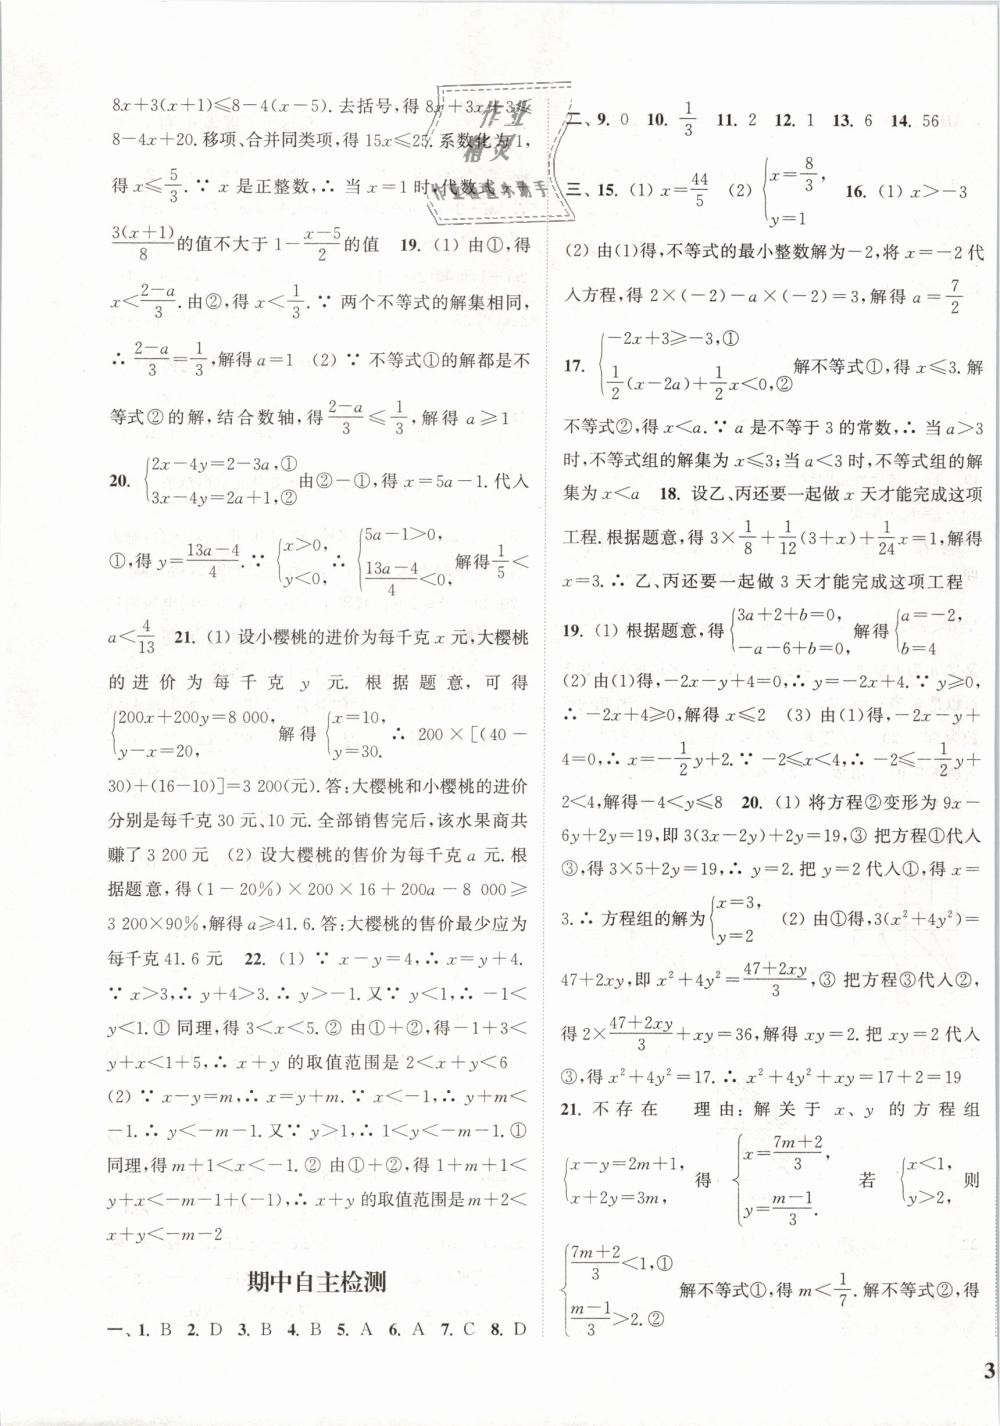 8x+3(x+1)≤8-4(x-5).去括号,得 8x+3x+3≤
8-4x+20.移项、合并同类项,得 15x≤25.系数化为1,
得 x≤5/3.∵ x 是正整数,∴ 当 x=1 时,代数式
3(x+1)/8 的值不大于 1-(x-5)/2 的值 19. (1) 由①,得
x<(2-a)/3.由②,得 x<1/3.∵ 两个不等式的解集相同,
∴ (2-a)/3=1/3,解得 a=1 (2) ∵ 不等式①的解都是不
等式②的解,结合数轴,得 (2-a)/3≤1/3,解得 a≥1
20. {2x-4y=2-3a,① 3x-4y=2a+1,② 由②-①,得 x=5a-1.代入
①,得 y=(13a-4)/4.∵ {x>0, y<0, ∴ {5a-1>0, (13a-4)/4<0, 解得 1/5<
a<4/13 21. (1) 设小樱桃的进价为每千克 x 元,大樱桃
的进价为每千克 y 元.根据题意,可得
{200x+200y=8 000, y-x=20, 解得 {x=10, y=30. ∴ 200×[(40-
30)+(16-10)]=3 200(元).答:大樱桃和小樱桃的进价
分别是每千克 30 元、10 元.全部销售完后,该水果商共
赚了 3 200 元 (2) 设大樱桃的售价为每千克 a 元.根
据题意,得 (1-20%)×200×16+200a-8 000≥
3 200×90%,解得 a≥41.6.答:大樱桃的售价最少应为
每千克 41.6 元 22. (1) ∵ x-y=4,∴ x=y+4.
∵ x>3,∴ y+4>3.∴ y>-1.又∵ y<1,∴ -1<
y<1.① 同理,得 3<x<5.② 由①+②,得-1+3<
y+x<1+5,∴ x+y 的取值范围是 2<x+y<6
(2) ∵ x-y=m,∴ x=y+m.∵ x<-1,∴ y+m<
-1.∴ y<-m-1.又∵ y>1,∴ 1<y<-m-1.①
同理,得 m+1<x<-1.② 由①+②,得 1+m+1<
y+x<-m-1+(-1),∴ x+y 的取值范围是 m+2<
x+y<-m-2
期中自主检测
一、1. B 2. D 3. B 4. B 5. A 6. A 7. C 8. D
二、9. 0 10. 1/3 11. 2 12. 1 13. 6 14. 56
三、15. (1) x=44/5 (2) {x=8/3, y=1 16. (1) x>-3
(2) 由(1)得,不等式的最小整数解为-2,将 x=-2 代
入方程,得 2×(-2)-a×(-2)=3,解得 a=7/2
17. {-2x+3≥-3,① 1/2(x-2a)+1/2x<0,② 解不等式①,得 x≤3.解
不等式②,得 x<a.∵ a 是不等于 3 的常数,∴ 当 a>3
时,不等式组的解集为 x≤3;当 a<3 时,不等式组的解
集为 x<a 18. 设乙、丙还要一起做 x 天才能完成这项
工程.根据题意,得 3×1/8+1/12(3+x)+1/24x=1,解得
x=3.∴ 乙、丙还要一起做 3 天才能完成这项工程
19. (1) 根据题意,得 {3a+2+b=0, -a-6+b=0, 解得 {a=-2, b=4
(2) 由(1)得,-2x-y+4=0,∴ y=-2x+4.∵ y≥0,
∴ -2x+4≥0,解得 x≤2 (3) 由(1)得,-2x-y+
4=0,∴ x=-1/2y+2.∵ -2≤x<4,∴ -2≤-1/2y+
2<4,解得-4<y≤8 20. (1) 将方程②变形为 9x-
6y+2y=19,即 3(3x-2y)+2y=19,③ 把方程①代入
③,得 3×5+2y=19,∴ y=2.把 y=2 代入①,得 x=
3.∴ 方程组的解为 {x=3, y=2 (2) 由①得,3(x²+4y²)=
47+2xy,即 x²+4y²=(47+2xy)/3,③ 把方程③代入②,
得 2×(47+2xy)/3+xy=36,解得 xy=2.把 xy=2 代入
③,得 x²+4y²=17.∴ x²+4y²+xy=17+2=19
21. 不存在 理由:解关于 x、y 的方程组
{x-y=2m+1, x+2y=3m, 得 {x=(7m+2)/3, y=(m-1)/3. 若 {x<1, y>2, 则
{(7m+2)/3<1,① (m-1)/3>2.② 解不等式①,得 m<1/7.解不等式②,得
3
作业
精灵